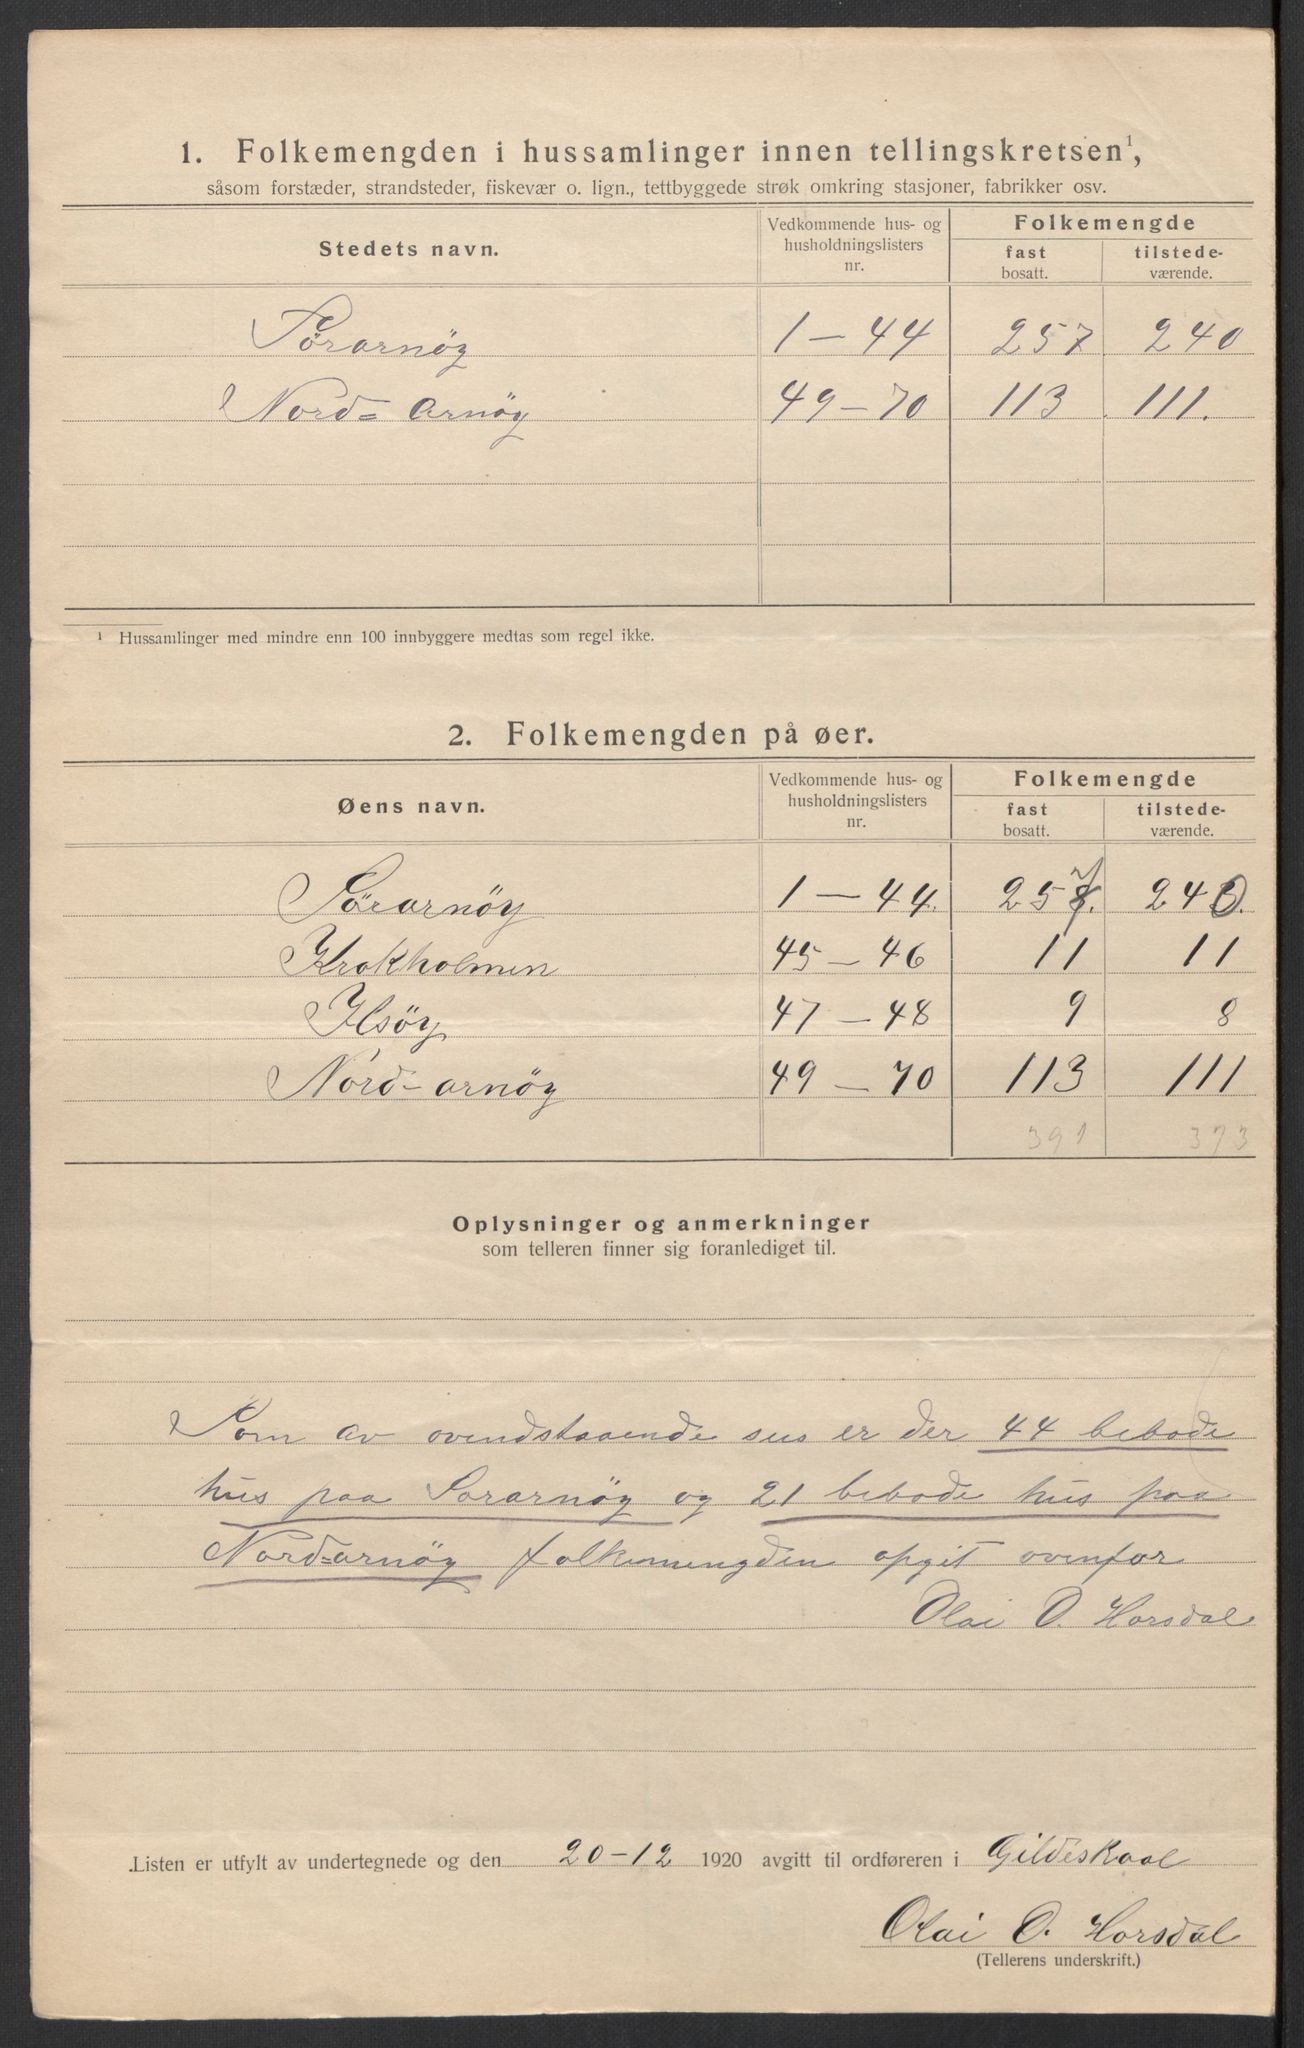 1. Folkemengden i hussamlinger innen tellingskretsen¹,
såsom forstæder, strandsteder, fiskevær o. lign., tettbyggede strøk omkring stasjoner, fabrikker osv.
Stedets navn. Vedkommende hus- og husholdningslisters nr. Folkemengde
fast bosatt. tilstede-værende.
Sørarnöy 1 — 44 257 240
Nord= Arnöy 49 — 70 113 111.
¹ Hussamlinger med mindre enn 100 innbyggere medtas som regel ikke.
2. Folkemengden på øer.
Øens navn. Vedkommende hus- og husholdningslisters nr. Folkemengde
fast bosatt. tilstede-værende.
Sörarnöy 1 — 44. 257. 240.
Krokholmen 45 — 46 11 11
Ilsöy 47 — 48 9 8
Nord-arnöy 49 — 70 113 111
391 373
Oplysninger og anmerkninger
som telleren finner sig foranlediget til.
Som av ovenstaaende sees er der 44 bebode
hus paa Sørarnöy og 21 bebode hus paa
Nord=arnöy folkemengden opgit ovenfor
Olai O. Horsdal
Listen er utfylt av undertegnede og den 20-12 1920 avgitt til ordføreren i Gildeskaal
Olai O. Horsdal
(Tellerens underskrift.)